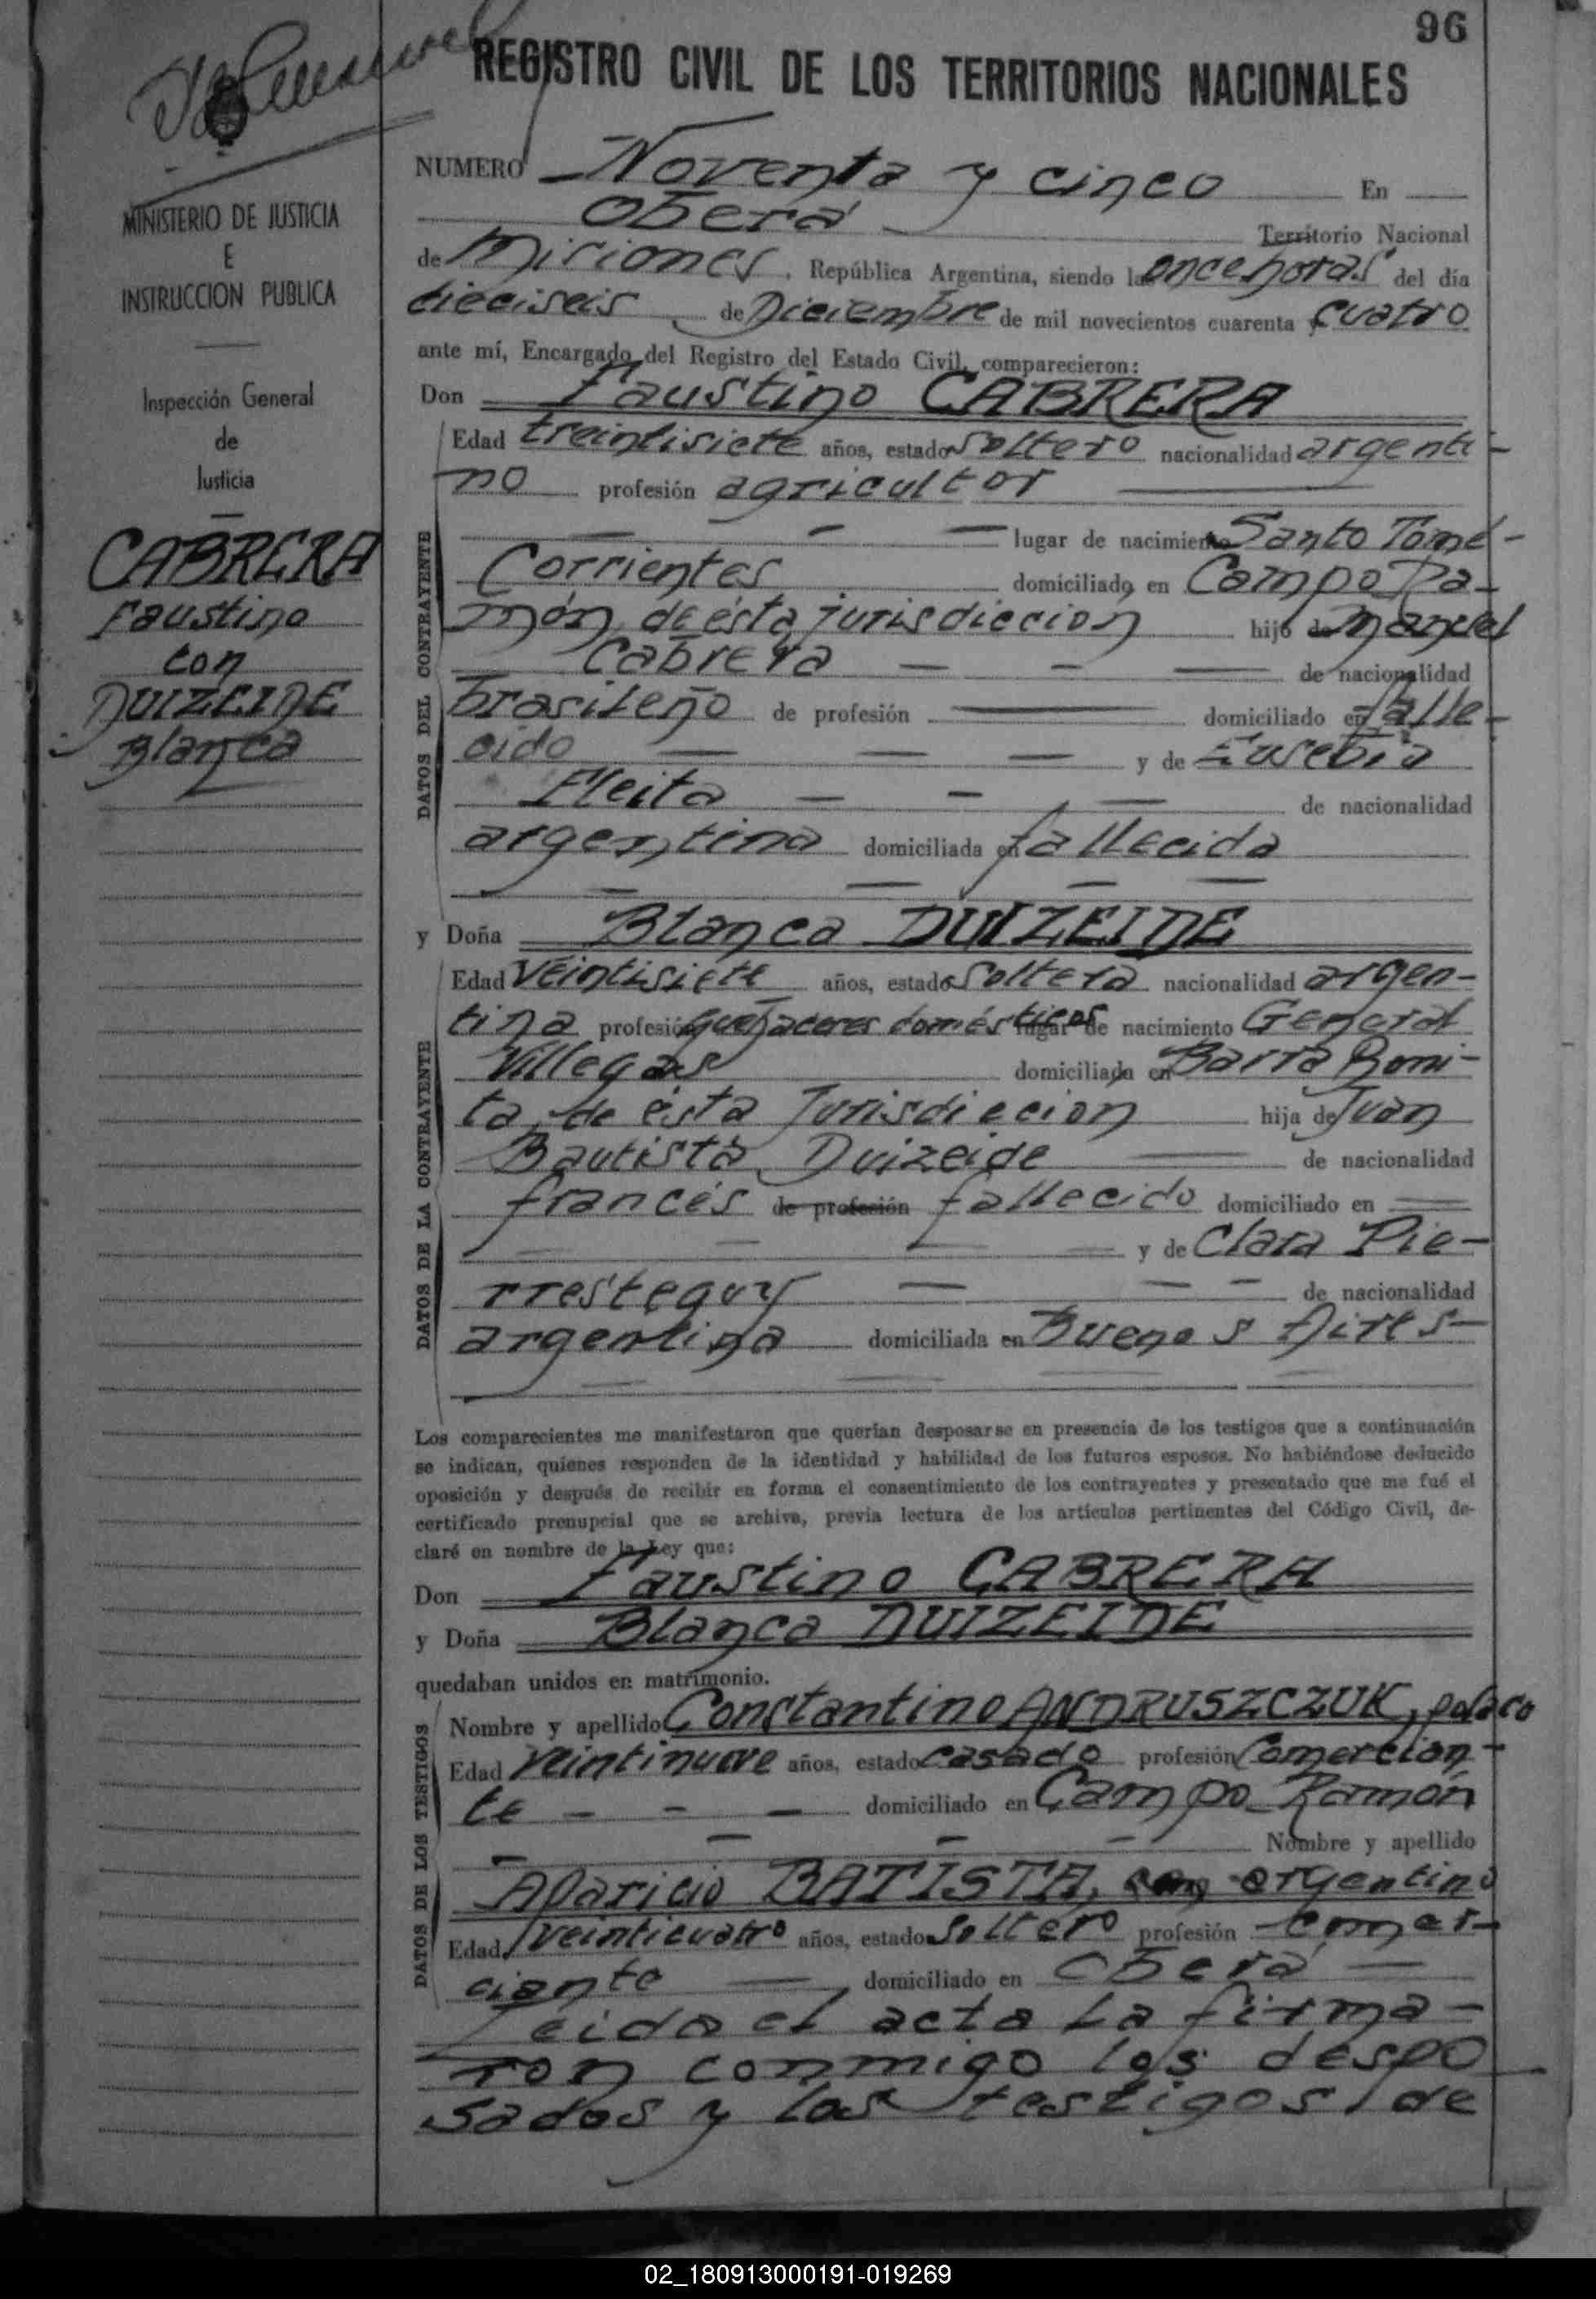 96
REGISTRO CIVIL DE LOS TERRITORIOS NACIONALES
MINISTERIO DE JUSTICIA
E
INSTRUCCION PUBLICA
Inspección General
de
Justicia
CABRERA
Faustino
con
DUIZEIDE
Blanca
NUMERO Noventa y cinco En
Oberá Territorio Nacional
de Misiones, República Argentina, siendo las once horas del día
dieciseis de Diciembre de mil novecientos cuarenta y cuatro
ante mí, Encargado del Registro del Estado Civil, comparecieron:
Don Faustino CABRERA
DATOS DEL CONTRAYENTE
Edad treintisiete años, estado soltero nacionalidad argenti-
no profesión agricultor
lugar de nacimiento Santo Tomé-
Corrientes domiciliado en Campo Ra-
món, de ésta jurisdiccion hijo de Manuel
Cabrera de nacionalidad
brasileño de profesión domiciliado en falle-
cido y de Eusebia
Fleita de nacionalidad
argentina domiciliada en fallecida
y Doña Blanca DUIZEIDE
DATOS DE LA CONTRAYENTE
Edad veintisiete años, estado soltera nacionalidad argen-
tina profesión quehaceres domésticos lugar de nacimiento General
Villegas domiciliada en Barra Boni-
ta, de ésta Jurisdiccion hija de Juan
Bautista Duizeide de nacionalidad
francés de profesión fallecido domiciliado en
y de Clara Pie-
rresteguy de nacionalidad
argentina domiciliada en Buenos Aires-
Los comparecientes me manifestaron que querían desposarse en presencia de los testigos que a continuación
se indican, quienes responden de la identidad y habilidad de los futuros esposos. No habiéndose deducido
oposición y después de recibir en forma el consentimiento de los contrayentes y presentado que me fué el
certificado prenupcial que se archiva, previa lectura de los artículos pertinentes del Código Civil, de-
claré en nombre de la Ley que:
Don Faustino CABRERA
y Doña Blanca DUIZEIDE
quedaban unidos en matrimonio.
DATOS DE LOS TESTIGOS
Nombre y apellido Constantino ANDRUSZCZUK, polaco
Edad veintinueve años, estado casado profesión Comercian-
te domiciliado en Campo Ramón
Nombre y apellido
Aparicio BATISTA, argentino
Edad veinticuatro años, estado soltero profesión comer-
ciante domiciliado en Oberá
Leida el acta la firma-
ron conmigo los despo
sados y los testigos de
02_180913000191-019269